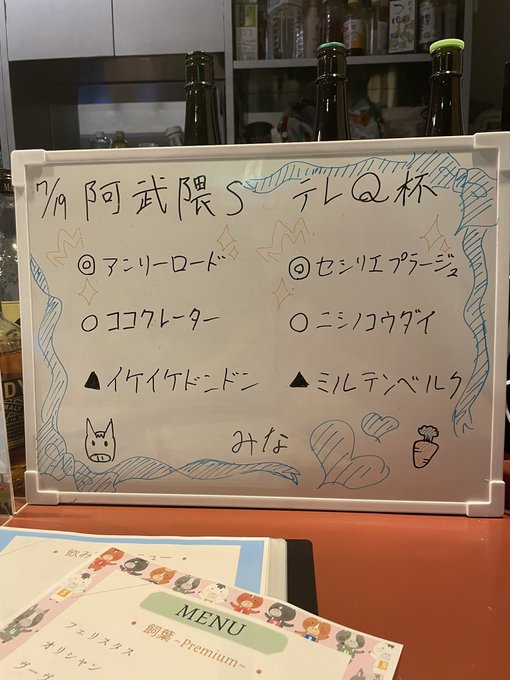 7/19 阿武隈S テレQ杯
◎アンリーロード ◎セシリエプラージュ
○ココクレーター ○ニシノコウダイ
▲イケイケドンドン ▲ミルテンベルク
みな
MENU
飼葉~Premium~
フェリスタス
オリシャン